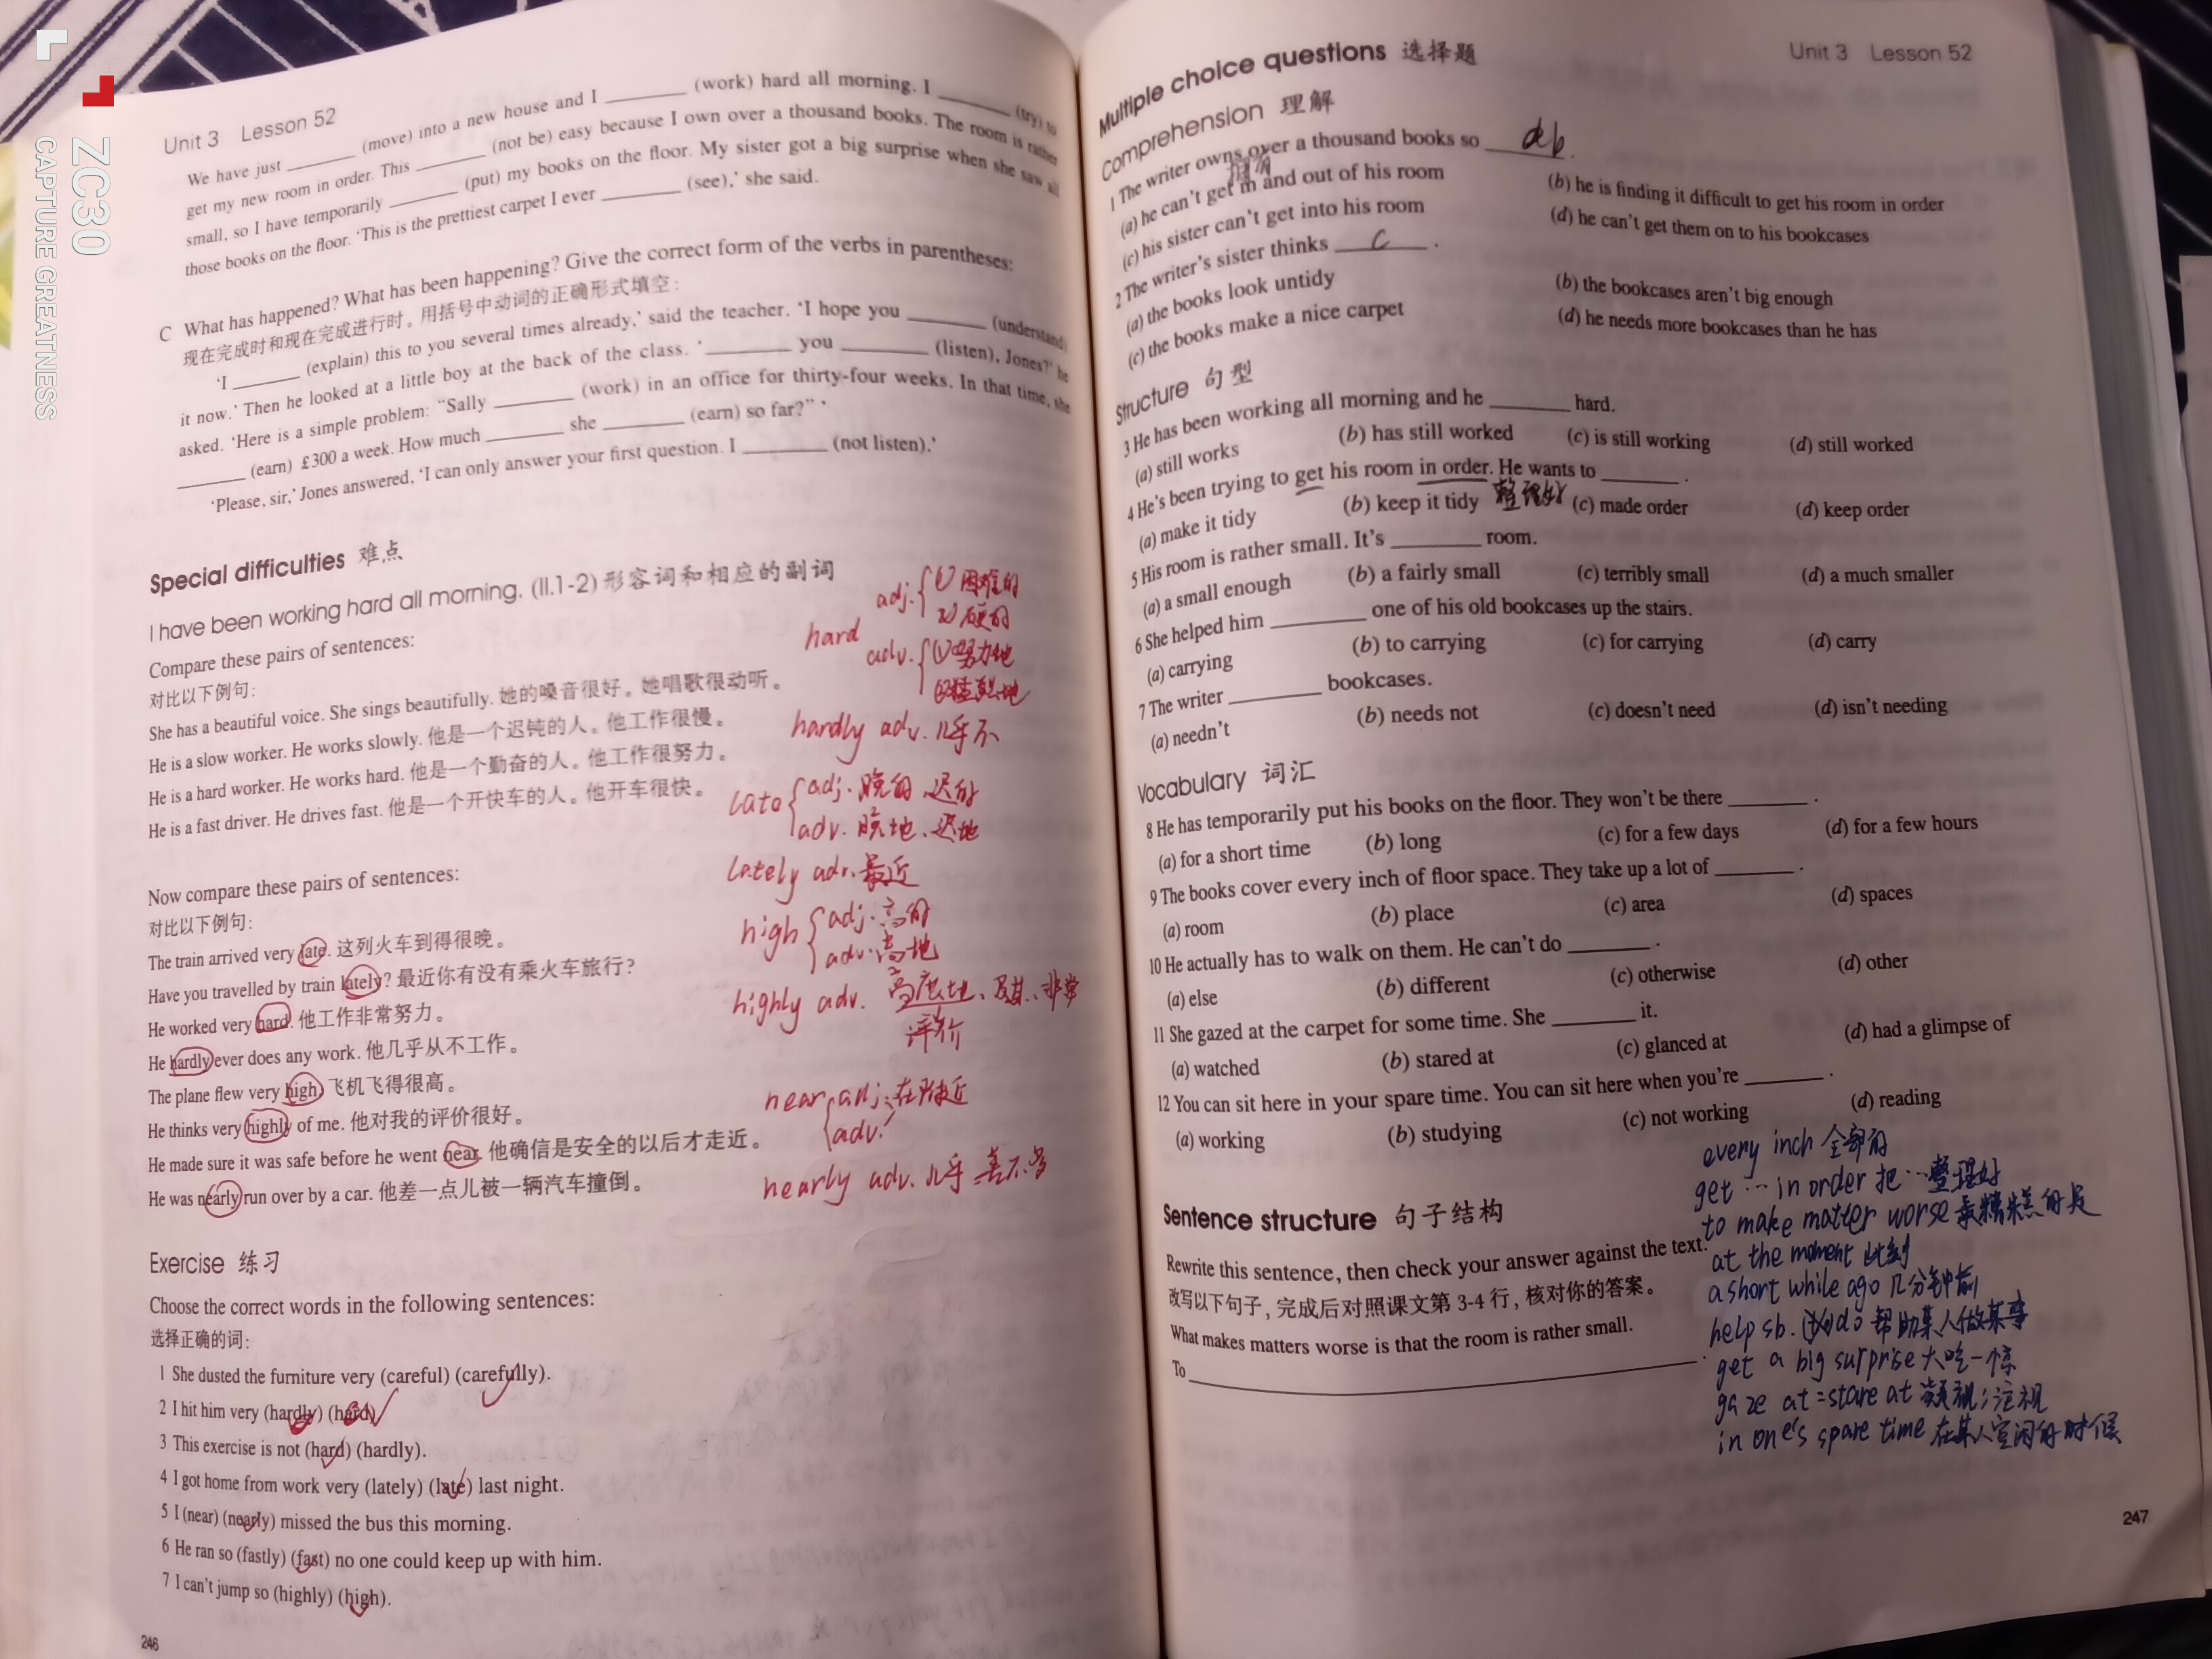 ZC30
CAPTURE GREATNESS
Unit 3 Lesson 52
We have just ______ (move) into a new house and I ______ (work) hard all morning. I ______ (try) to
get my new room in order. This ______ (not be) easy because I own over a thousand books. The room is rather
small, so I have temporarily ______ (put) my books on the floor. My sister got a big surprise when she saw all
those books on the floor. ‘This is the prettiest carpet I ever ______ (see),’ she said.
C What has happened? What has been happening? Give the correct form of the verbs in parentheses:
现在完成时和现在完成进行时。用括号中动词的正确形式填空：
‘I ______ (explain) this to you several times already,’ said the teacher. ‘I hope you ______ (understand)
it now.’ Then he looked at a little boy at the back of the class. ‘______ you ______ (listen), Jones?’ he
asked. ‘Here is a simple problem: “Sally ______ (work) in an office for thirty-four weeks. In that time, she
______ (earn) £300 a week. How much ______ she ______ (earn) so far?” ’
‘Please, sir,’ Jones answered, ‘I can only answer your first question. I ______ (not listen).’
Special difficulties 难点
I have been working hard all morning. (ll.1-2) 形容词和相应的副词
Compare these pairs of sentences:
对比以下例句：
She has a beautiful voice. She sings beautifully. 她的嗓音很好。她唱歌很动听。
He is a slow worker. He works slowly. 他是一个迟钝的人。他工作很慢。
He is a hard worker. He works hard. 他是一个勤奋的人。他工作很努力。
He is a fast driver. He drives fast. 他是一个开快车的人。他开车很快。
hard adj. ① 困难的
② 硬的
adv. ① 努力地
② 猛烈地
hardly adv. 几乎不
late adj. 晚的 迟的
adv. 晚地、迟地
lately adv. 最近
high adj. 高的
adv. 高地
highly adv. 高度地、及其、非常
评价
near adj. 在附近
adv.
nearly adv. 几乎 差不多
Now compare these pairs of sentences:
对比以下例句：
The train arrived very late. 这列火车到得很晚。
Have you travelled by train lately? 最近你有没有乘火车旅行？
He worked very hard. 他工作非常努力。
He hardly ever does any work. 他几乎从不工作。
The plane flew very high. 飞机飞得很高。
He thinks very highly of me. 他对我的评价很好。
He made sure it was safe before he went near. 他确信是安全的以后才走近。
He was nearly run over by a car. 他差一点儿被一辆汽车撞倒。
Exercise 练习
Choose the correct words in the following sentences:
选择正确的词：
1 She dusted the furniture very (careful) (carefully).
2 I hit him very (hardly) (hard).
3 This exercise is not (hard) (hardly).
4 I got home from work very (lately) (late) last night.
5 I (near) (nearly) missed the bus this morning.
6 He ran so (fastly) (fast) no one could keep up with him.
7 I can’t jump so (highly) (high).
246
Unit 3 Lesson 52
Multiple choice questions 选择题
Comprehension 理解
1 The writer owns over a thousand books so ab.
拥有
(a) he can’t get in and out of his room (b) he is finding it difficult to get his room in order
(c) his sister can’t get into his room (d) he can’t get them on to his bookcases
2 The writer’s sister thinks c.
(a) the books look untidy (b) the bookcases aren’t big enough
(c) the books make a nice carpet (d) he needs more bookcases than he has
Structure 句型
3 He has been working all morning and he ______ hard.
(a) still works (b) has still worked (c) is still working (d) still worked
4 He’s been trying to get his room in order. He wants to ______ .
整理好
(a) make it tidy (b) keep it tidy (c) made order (d) keep order
5 His room is rather small. It’s ______ room.
(a) a small enough (b) a fairly small (c) terribly small (d) a much smaller
6 She helped him ______ one of his old bookcases up the stairs.
(a) carrying (b) to carrying (c) for carrying (d) carry
7 The writer ______ bookcases.
(a) needn’t (b) needs not (c) doesn’t need (d) isn’t needing
Vocabulary 词汇
8 He has temporarily put his books on the floor. They won’t be there ______ .
(a) for a short time (b) long (c) for a few days (d) for a few hours
9 The books cover every inch of floor space. They take up a lot of ______ .
(a) room (b) place (c) area (d) spaces
10 He actually has to walk on them. He can’t do ______ .
(a) else (b) different (c) otherwise (d) other
11 She gazed at the carpet for some time. She ______ it.
(a) watched (b) stared at (c) glanced at (d) had a glimpse of
12 You can sit here in your spare time. You can sit here when you’re ______ .
(a) working (b) studying (c) not working (d) reading
Sentence structure 句子结构
Rewrite this sentence, then check your answer against the text.
改写以下句子，完成后对照课文第 3-4 行，核对你的答案。
What makes matters worse is that the room is rather small.
To ______ .
every inch 全部的
get … in order 把…整理好
to make matter worse 最糟糕的是
at the moment 此刻
a short while ago 几分钟前
help sb. (to) do 帮助某人做某事
get a big surprise 大吃一惊
gaze at = stare at 凝视；注视
in one's spare time 在某人空闲的时候
247